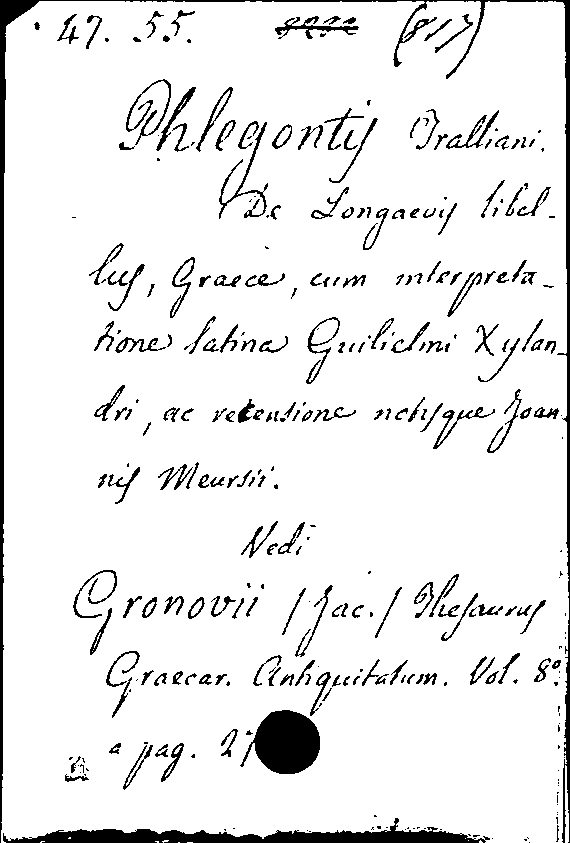 47. 55. (817)
Phlegontis Tralliani.
De Longaevis libel-
lus, Graece, cum interpreta-
tione latina Guilielmi Xylan-
dri, ac recensione notisque Joan-
nis Meursii.
Vedi
Gronovii /Jac./ Thesaurus
Graecar. Antiquitatum. Vol. 8º.
a pag. 27